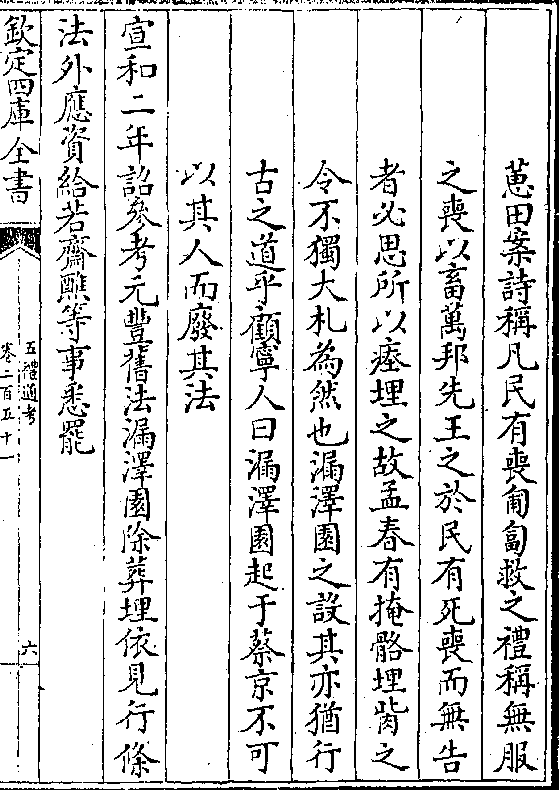 蕙田案詩稱凡民有喪匍匐救之禮稱無服
之喪以畜萬邦先王之於民有死喪而無告
者必思所以瘞埋之故孟春有掩骼埋胔之
令不獨大札為然也漏澤園之設其亦猶行
古之道乎顧寧人曰漏澤園起于蔡京不可
以其人而廢其法
宣和二年詔參考元豐舊法漏澤園除葬埋依見行條
法外應資給若齋醮等事悉罷
欽定四庫全書
五禮通考
卷二百五十一
六